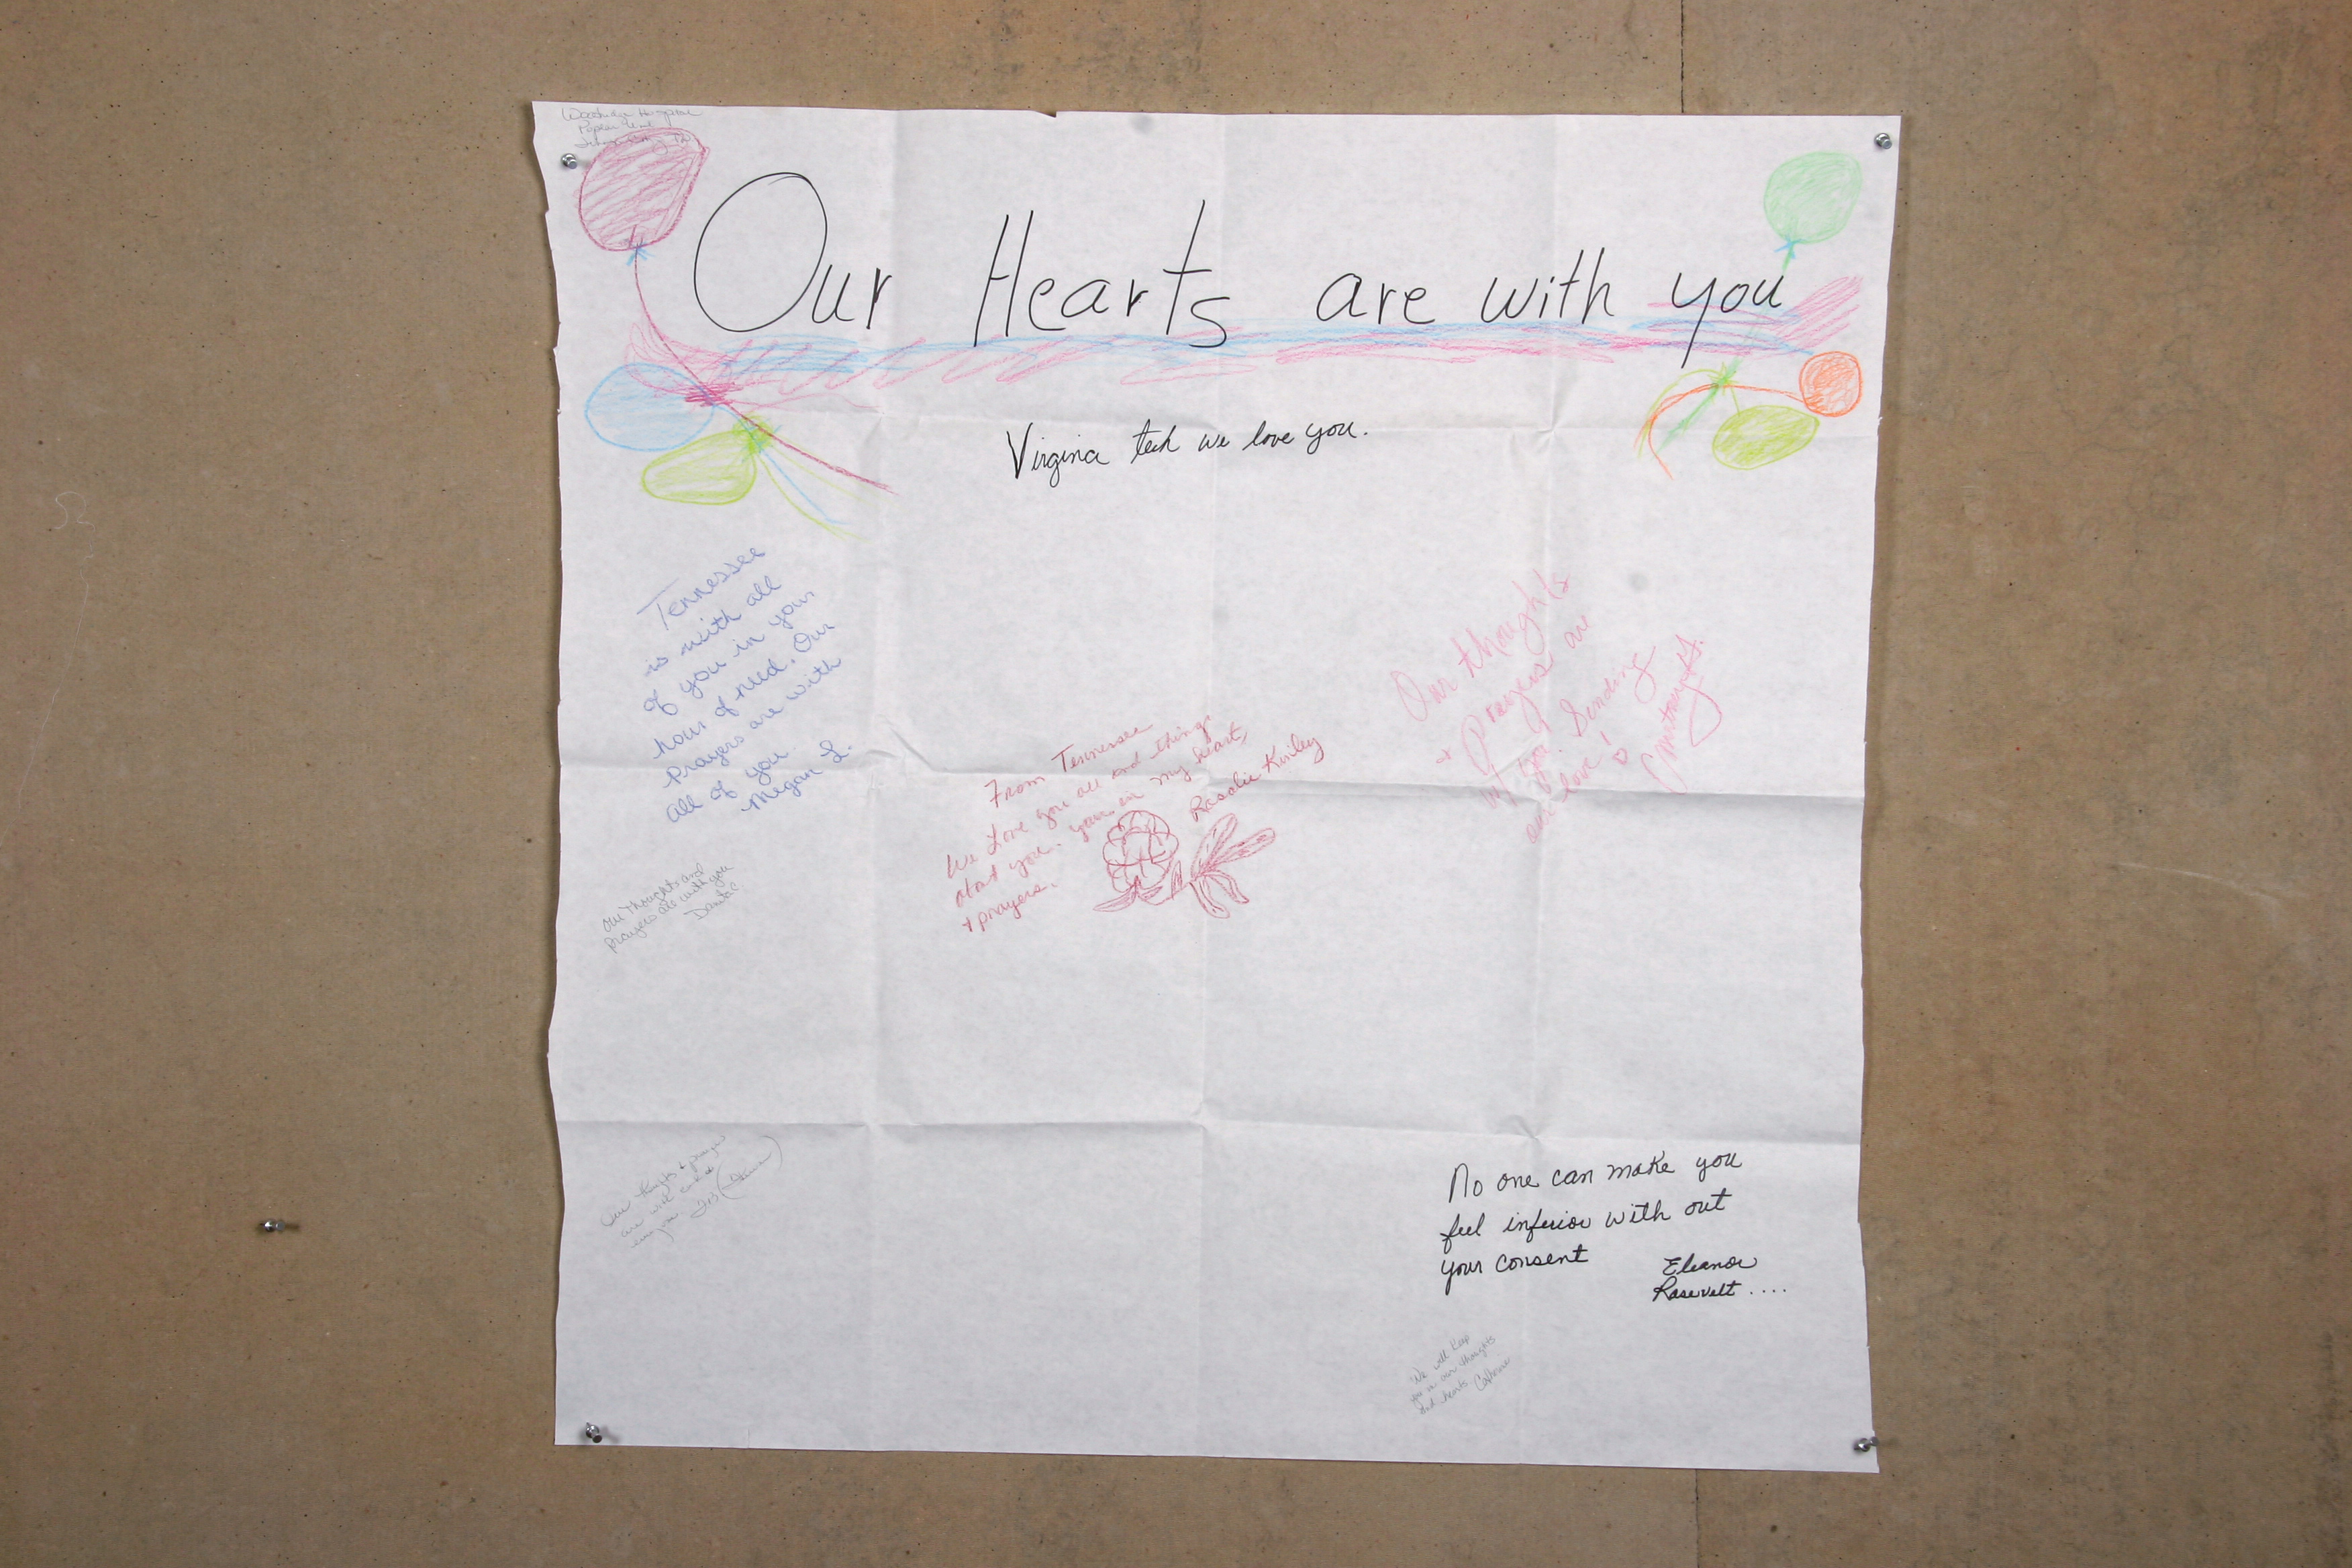 Woodridge Hospital
Poplar Unit
Our Hearts are with you
Virginia tech we love you.
Tennessee
is with all
of you in your
hour of need. Our
Prayers are with
all of you.
Megan L.
From Tennessee
We Love you all and things
about you. your in my heart,
+ prayers.
Rosalie Kinley
Our thoughts
+ Prayers are
w/ you. Sending
our love!
our thoughts and
prayers are with you
Our thoughts & prayers
are with each
No one can make you
feel inferior with out
your consent
Eleanor
Rosevelt ....
We will keep
you in our thoughts
and hearts Catherine